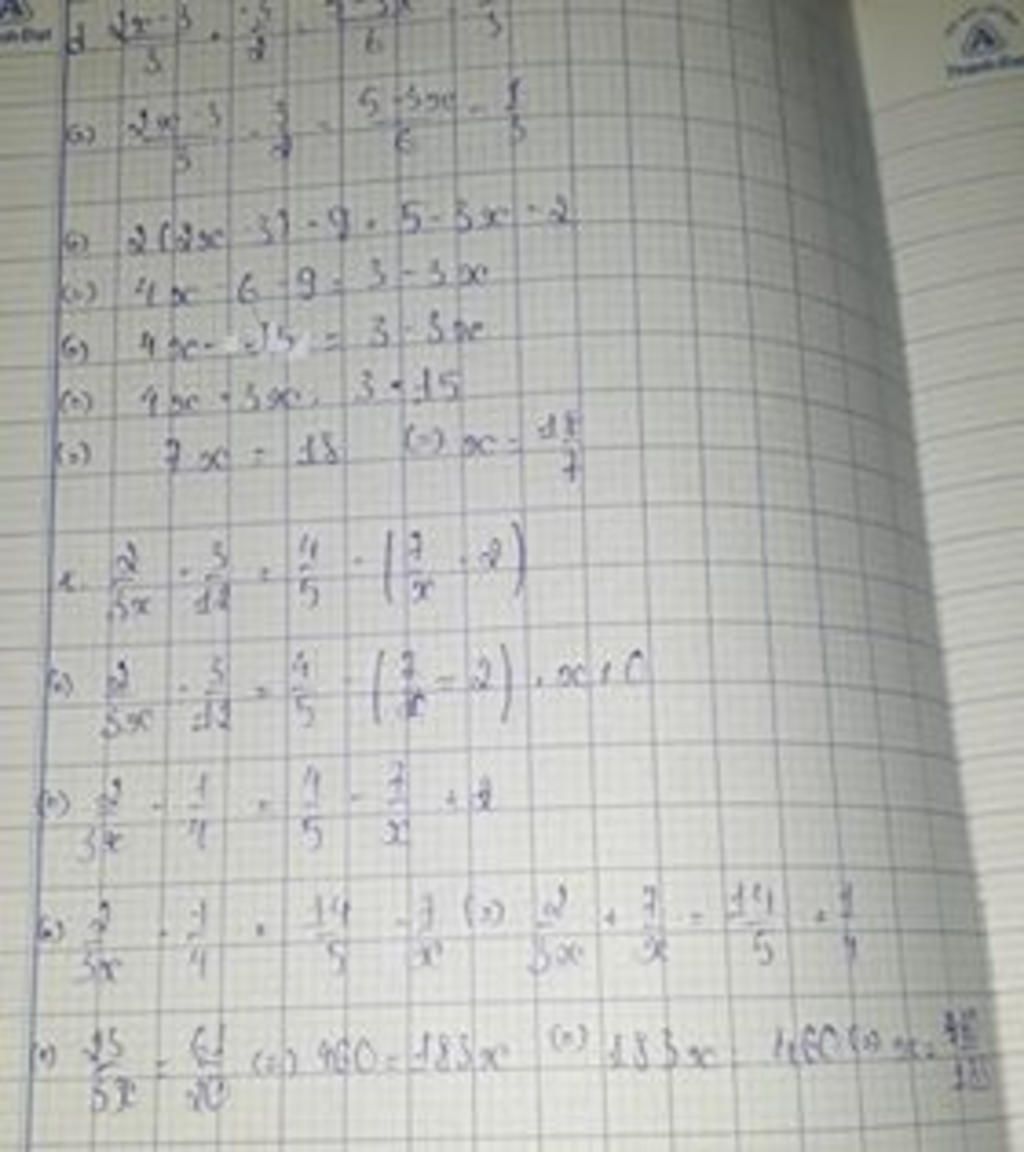 d. (2x-3)/3 + -3/2 = (5-3x)/6 - 1/3
(=) (2x-3)/3 - 3/2 = (5-3x)/6 - 1/3
(=) 2(2x-3) - 9 = 5 - 3x - 2
(=) 4x - 6 - 9 = 3 - 3x
(=) 4x - 15 = 3 - 3x
(=) 4x + 3x = 3 + 15
(=) 7x = 18 (=) x = 18/7
2/3x - 3/12 = 4/5 - (7/x - 2)
(=) 2/3x - 3/12 = 4/5 - (7/x - 2), x ≠ 0
(=) 2/3x - 1/4 = 4/5 - 7/x + 2
(=) 2/3x - 1/4 = 14/5 - 7/x (=) 2/3x + 7/x = 14/5 + 1/4
(=) 23/3x = 61/20 (=) 460 = 183x (=) 183x = 460 (=) x =